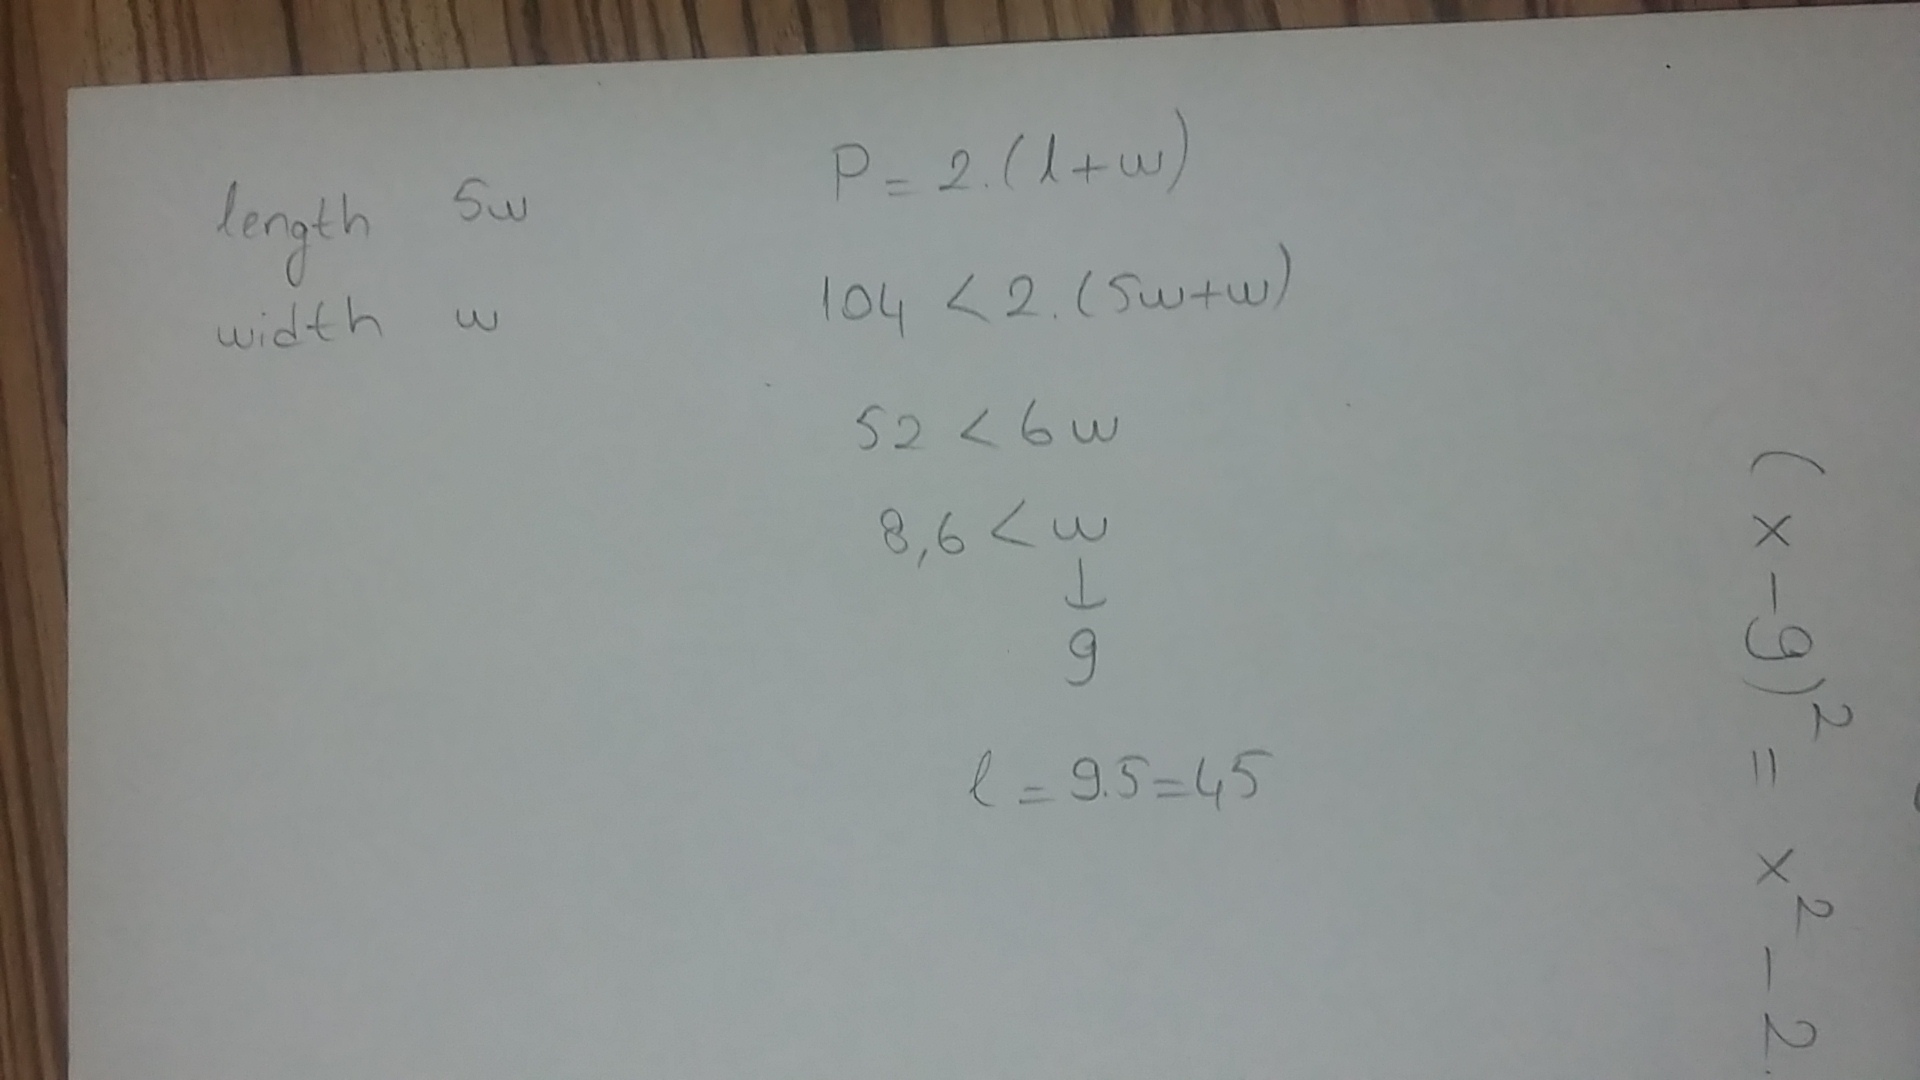 length 5w
width w
P = 2.(l+w)
104 < 2.(5w+w)
52 < 6w
8,6 < w
↓
9
l = 9.5 = 45
(x-9)² = x² - 2.